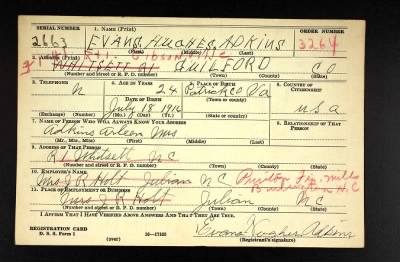 SERIAL NUMBER 1. NAME (Print) ORDER NUMBER
2663 EVANS HUGHES ADKINS 3264
(First) (Middle) (Last)
2. ADDRESS (Print)
WHITSETT R1 GUILFORD CO
(Number and street or R. F. D. number) (Town) (County) (State)
3. TELEPHONE 4. AGE IN YEARS 5. PLACE OF BIRTH 6. COUNTRY OF CITIZENSHIP
N 24 Patrick Co Va
DATE OF BIRTH (Town or county)
July 18 1916 U S A
(Mo.) (Day) (Yr.) (State or country)
7. NAME OF PERSON WHO WILL ALWAYS KNOW YOUR ADDRESS 8. RELATIONSHIP OF THAT PERSON
Adkins Arleen Mrs
(Mr., Mrs., Miss) (First) (Middle) (Last)
9. ADDRESS OF THAT PERSON
R1 Whitsett N C
(Number and street or R. F. D. number) (Town) (County) (State)
10. EMPLOYER'S NAME
Mrs J R Holt Julian N C Mills
Burlington N.C.
11. PLACE OF EMPLOYMENT OR BUSINESS
Mrs J R Holt Julian N C
(Number and street or R. F. D. number) (Town) (County) (State)
I AFFIRM THAT I HAVE VERIFIED ABOVE ANSWERS AND THAT THEY ARE TRUE.
Evans Hughes Adkins
REGISTRATION CARD
D. S. S. Form 1 16—17105 (Registrant's signature)
(over)